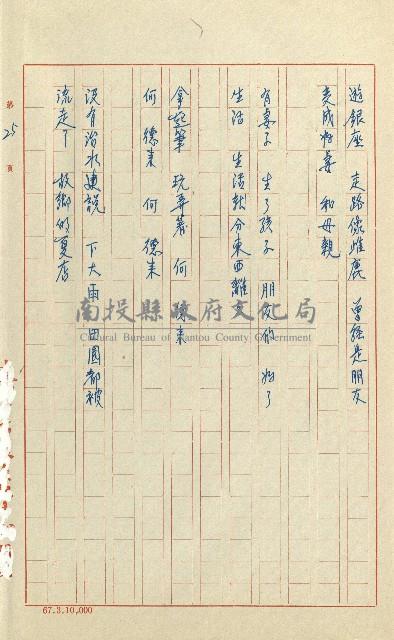 遊銀座 走路像雌鹿 曾經是朋友
變成好妻 和母親
有妻子 生了孩子 朋友的 好了
生活 生活就分東西離
拿起筆 玩弄著 何 德來
何 德來 何 德來
沒有治水建設 下大雨 田園都被
流走了 故鄉的夏店
第 25 頁
南投縣政府文化局
Cultural Bureau of Nantou County Government
67.3.10,000